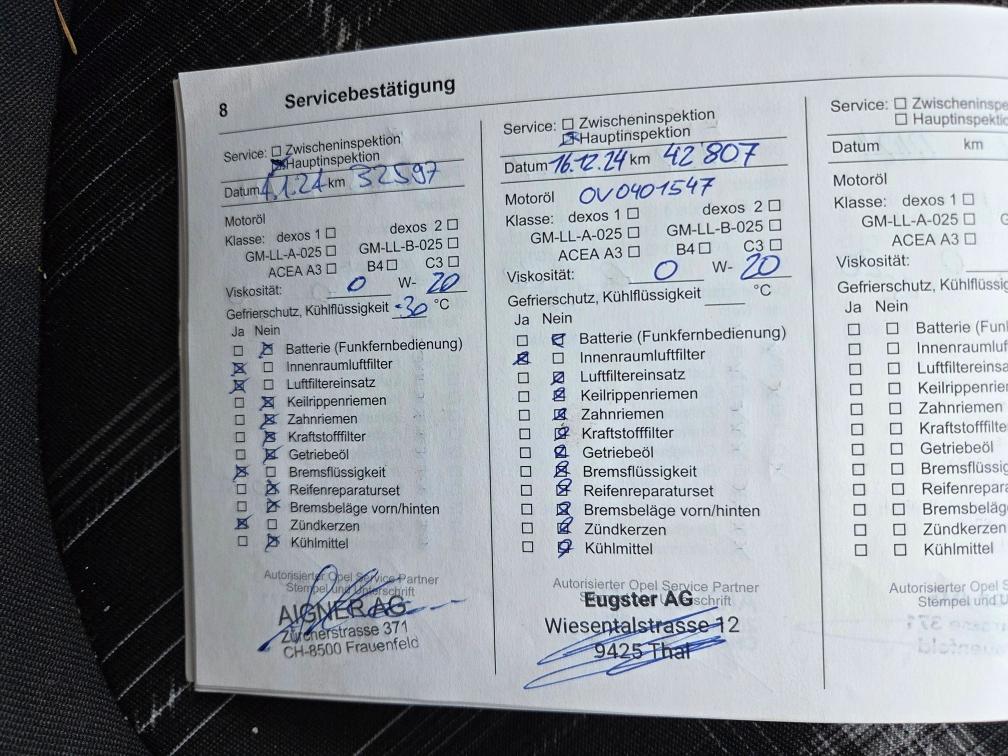 8 Servicebestätigung
Service: Zwischeninspektion
Hauptinspektion
Datum 1.24 km 32597
Motoröl
Klasse: dexos 1 dexos 2
GM-LL-A-025 GM-LL-B-025
ACEA A3 B4 C3
Viskosität: 0 W- 20
Gefrierschutz, Kühlflüssigkeit -30 °C
Ja Nein
Batterie (Funkfernbedienung)
Innenraumluftfilter
Luftfiltereinsatz
Keilrippenriemen
Zahnriemen
Kraftstofffilter
Getriebeöl
Bremsflüssigkeit
Reifenreparaturset
Bremsbeläge vorn/hinten
Zündkerzen
Kühlmittel
Autorisierter Opel Service Partner
Stempel und Unterschrift
AIGNER AG
Zürcherstrasse 371
CH-8500 Frauenfeld
Service: Zwischeninspektion
Hauptinspektion
Datum 16.12.24 km 42807
Motoröl OV0401547
Klasse: dexos 1 dexos 2
GM-LL-A-025 GM-LL-B-025
ACEA A3 B4 C3
Viskosität: 0 W- 20
Gefrierschutz, Kühlflüssigkeit °C
Ja Nein
Batterie (Funkfernbedienung)
Innenraumluftfilter
Luftfiltereinsatz
Keilrippenriemen
Zahnriemen
Kraftstofffilter
Getriebeöl
Bremsflüssigkeit
Reifenreparaturset
Bremsbeläge vorn/hinten
Zündkerzen
Kühlmittel
Autorisierter Opel Service Partner
Eugster AG schrift
Wiesentalstrasse 12
9425 Thal
Service: Zwischeninspe
Hauptinspektio
Datum km
Motoröl
Klasse: dexos 1
GM-LL-A-025 G
ACEA A3
Viskosität:
Gefrierschutz, Kühlflüssig
Ja Nein
Batterie (Funk
Innenraumluf
Luftfiltereinsa
Keilrippenrie
Zahnriemen
Kraftstofffilte
Getriebeöl
Bremsflüssig
Reifenrepara
Bremsbeläge
Zündkerzen
Kühlmittel
Autorisierter Opel S
Stempel und U